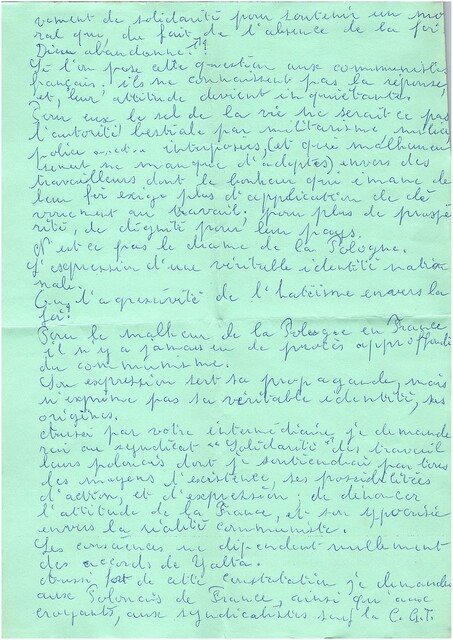 vement de solidarité pour soutenir un mo
ral que, du fait de l'absence de la foi
Dieu abandonne?
Si l'on pose cette question aux communistes
français; ils ne connaissent pas la réponse,
et, leur attitude devient inquiétante.
Pour eux le sel de la vie ne serait ce pas
l'autorité bestiale par militarisme milice
police interposées, (et qui malheureu
sement ne manque d'adeptes) envers des
travailleurs dont le bonheur qui émane de
leur foi exige plus d'application de dé
vouement au travail; pour plus de prospé
rité, de dignité pour leur pays.
N'est ce pas le drame de la Pologne.
L'expression d'une véritable identité natio
nale.
l'agressivité de l'hatéisme envers la
foi?
Pour le malheur de la Pologne en France
il n'y a jamais eu de procès approfondi
du communisme.
Son expression sert sa propagande, mais
n'exprime pas sa véritable identité, ses
origines.
Aussi par votre intermédiaire, je demande
rai au syndicat "Solidarité" des travail
leurs polonais dont je soutiendrai par tous
les moyens l'existence, ses possibilités
d'action, et d'expression; de dénoncer
l'attitude de la France, et son hypocrisie
envers la réalité communiste.
Les consciences ne dépendent nullement
des accords de Yalta.
Aussi fort de cette constatation je demande
aux Polonais de France, ainsi qu'aux
croyants, aux syndicalistes sauf la C.G.T.